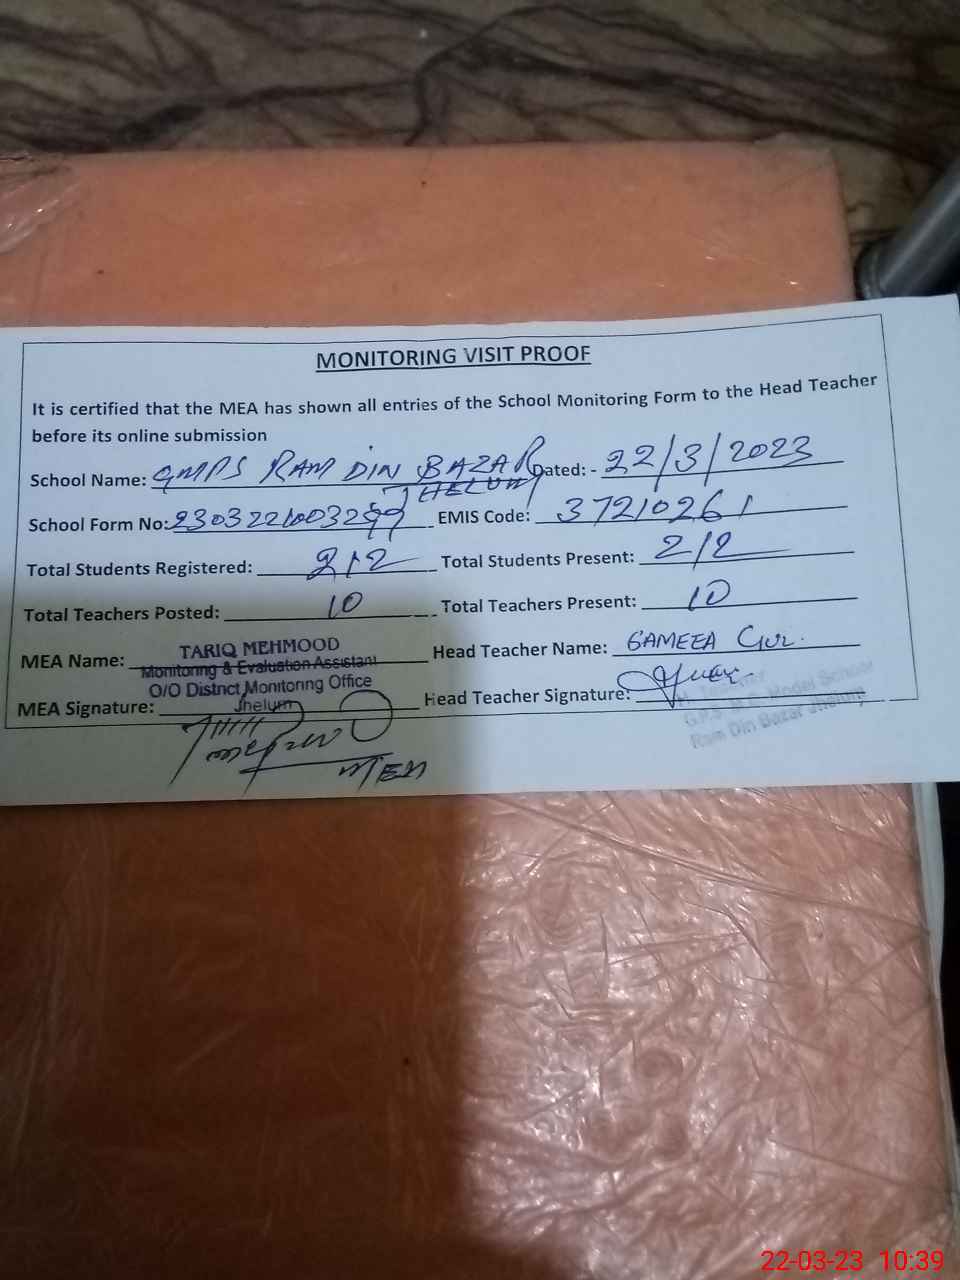 MONITORING VISIT PROOF
It is certified that the MEA has shown all entries of the School Monitoring Form to the Head Teacher
before its online submission
School Name: GMPS RAM DIN BAZAR Dated: - 22/3/2023
JHELUM
School Form No: EMIS Code: 37210261
Total Students Registered: 212 Total Students Present: 212
Total Teachers Posted: 10 Total Teachers Present: 10
MEA Name: TARIQ MEHMOOD Head Teacher Name: SAMEEA Gul.
Monitoring & Evaluation Assistant
O/O District Monitoring Office
MEA Signature: Jhelum Head Teacher Signature:
H. Teacher
G.P.S. M.C. Model School
Ram Din Bazar Jhelum
MEA
22-03-23 10:39